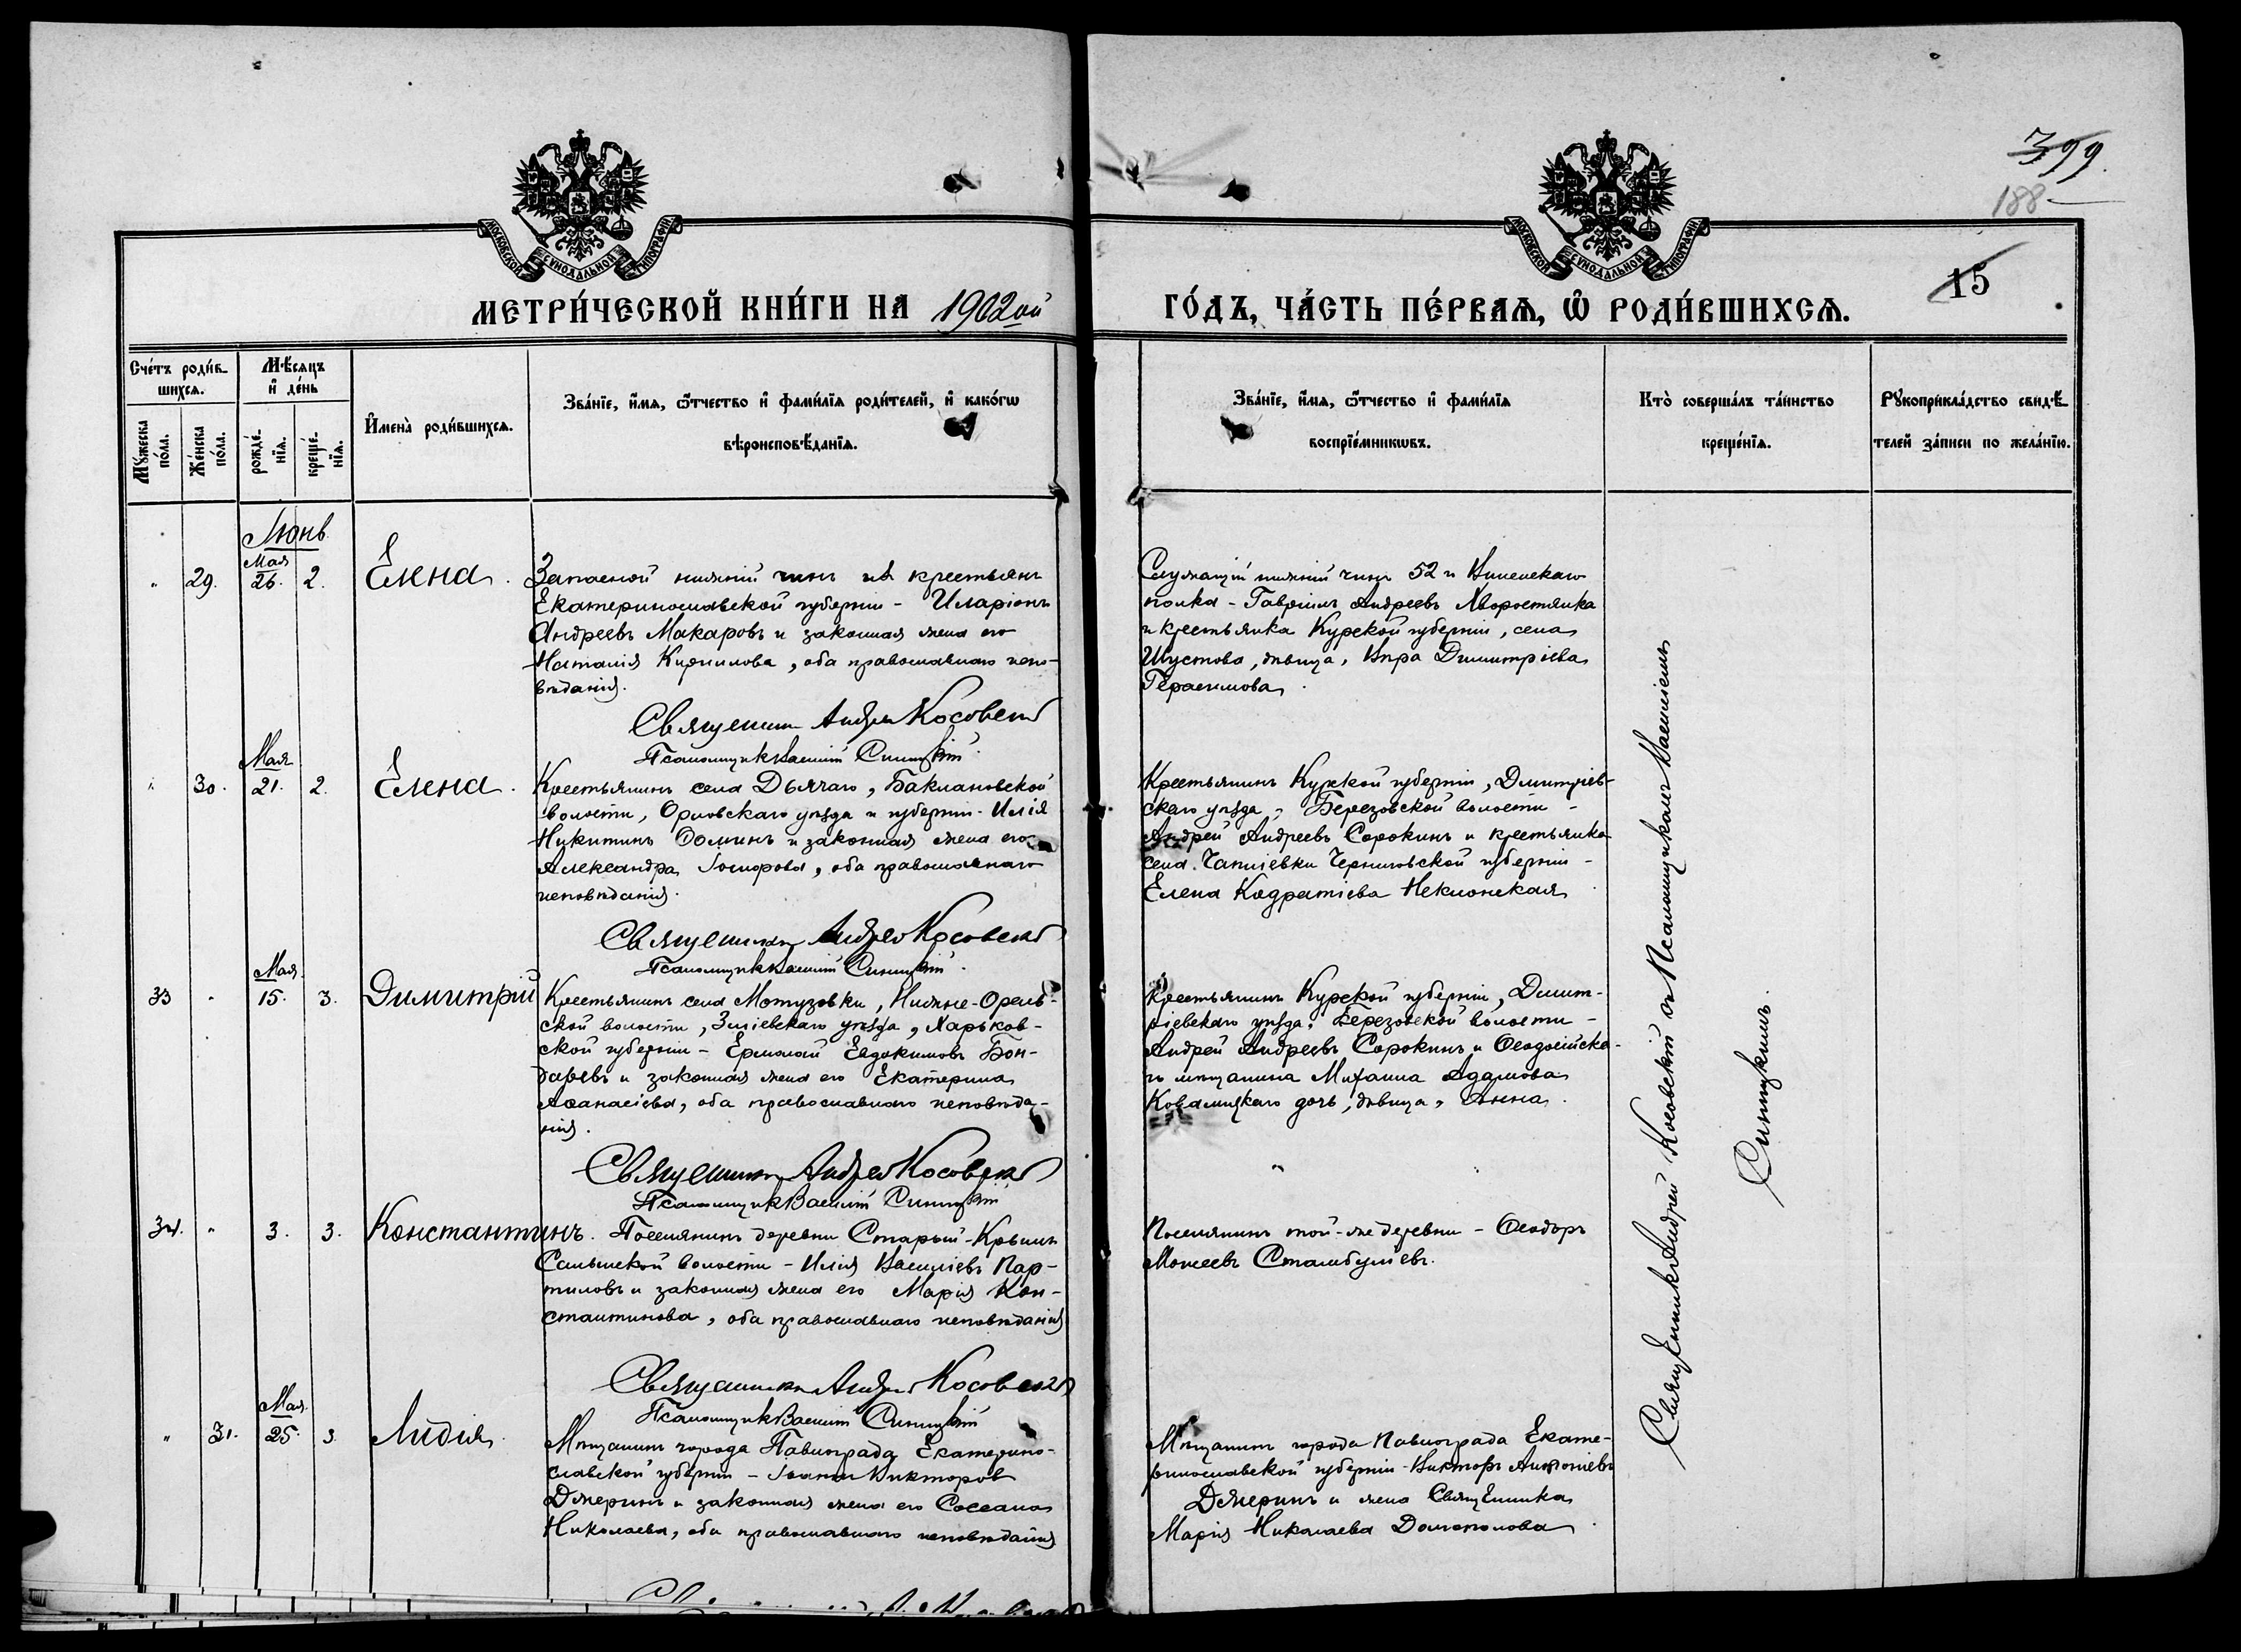 399.
188
15
МОСКОВСКОЙ СѴНОДАЛЬНОЙ ТИПОГРАФІИ
МОСКОВСКОЙ СѴНОДАЛЬНОЙ ТИПОГРАФІИ
МЕТРИ́ЧЕСКОЙ КНИ́ГИ НА 1902ой
ГО́ДЪ, ЧА́СТЬ ПЕ́РВАѦ, Ѿ РОДИ́ВШИХСѦ.
Сче́тъ роди́в-
шихсѧ.
Мꙋ́жеска по́ла.
Же́нска по́ла.
Мѣ́сѧцъ и де́нь
рожде́-
нїѧ.
креще́-
нїѧ.
И҆мена̀ роди́вшихсѧ.
Зва́нїе, и҆́мѧ, ѻ҆́тчество и҆ фами́лїѧ роди́телей, и҆ како́гѡ
вѣроисповѣ́данїѧ.
Зва́нїе, и҆́мѧ, ѻ҆́тчество и҆ фами́лїѧ
воспрїе́мникѡвъ.
Кто̀ соверша́лъ та́инство
креще́нїѧ.
Рꙋкоприкла́дство свидѣ́-
телей за́писи по жела́нїю.
Іюнь
" 29. Мая 26. 2. Елена.
Запасной нижній чинъ изъ крестьянъ
Екатеринославской губерніи - Иларіонъ
Андреевъ Макаровъ и законная жена его
Наталія Кириллова, оба православнаго испо-
вѣданія.
Священникъ Андрей Косовскій
Псаломщикъ Василій Синицкій.
Служащій нижній чинъ 52 п Виленскаго
полка - Гавріилъ Андреевъ Хворостянка
и крестьянка Курской губерніи, села
Шустова, дѣвица, Вѣра Димитріева
Герасимова.
" 30. Мая 21. 2. Елена.
Крестьянинъ села Дьячаго, Баклановской
волости, Орловскаго уѣзда и губерніи - Илія
Никитинъ Ѳоминъ и законная жена его
Александра, оба православнаго
исповѣданія.
Священникъ Андрей Косовскій
Псаломщикъ Василій Синицкій.
Крестьянинъ Курской губерніи, Димитріев-
скаго уѣзда, Березовской волости -
Андрей Андреевъ Сорокинъ и крестьянка
села Чаплевки Черниговской губерніи -
Елена Кодратіева Неклонская.
33 " Мая 15. 3. Димитрій
Крестьянинъ села Мотузовки, Нижне-Орель-
ской волости, Зміевскаго уѣзда, Харьков-
ской губерніи - Ермолай Евдокимовъ Бон-
даревъ и законная жена его Екатерина
Аѳанасіева, оба православнаго исповѣда-
нія.
Священникъ Андрей Косовскій
Псаломщикъ Василій Синицкій
Крестьянинъ Курской губерніи, Димит-
ріевскаго уѣзда, Березовской волости -
Андрей Андреевъ Сорокинъ и Ѳеодосійска-
го мѣщанина Михаила Адамова
Ковалицкаго дочь, дѣвица, Анна.
34. " 3. 3. Константинъ.
Поселянинъ деревни Старый-Крымъ
Салынской волости - Илія Василіевъ Пар-
тиловъ и законная жена его Марія Кон-
стантинова, оба православнаго исповѣданія
Священникъ Андрей Косовскій
Псаломщикъ Василій Синицкій
Поселянинъ той-же деревни - Ѳеодоръ
Моисеевъ Стамбуліевъ.
" 31. Мая 25. 3. Лидія.
Мѣщанинъ города Павлограда Екатерино-
славской губерніи - Іоаннъ Викторовъ
Дмеринъ и законная жена его Соссана
Николаева, оба православнаго исповѣданія
Мѣщанинъ города Павлограда Екате-
ринославской губерніи - Викторъ Антоніевъ
Дмеринъ и жена Священника
Марія Николаева Долгополова.
Священникъ Андрей Косовскій съ Псаломщикомъ Василіемъ
Синицкимъ.